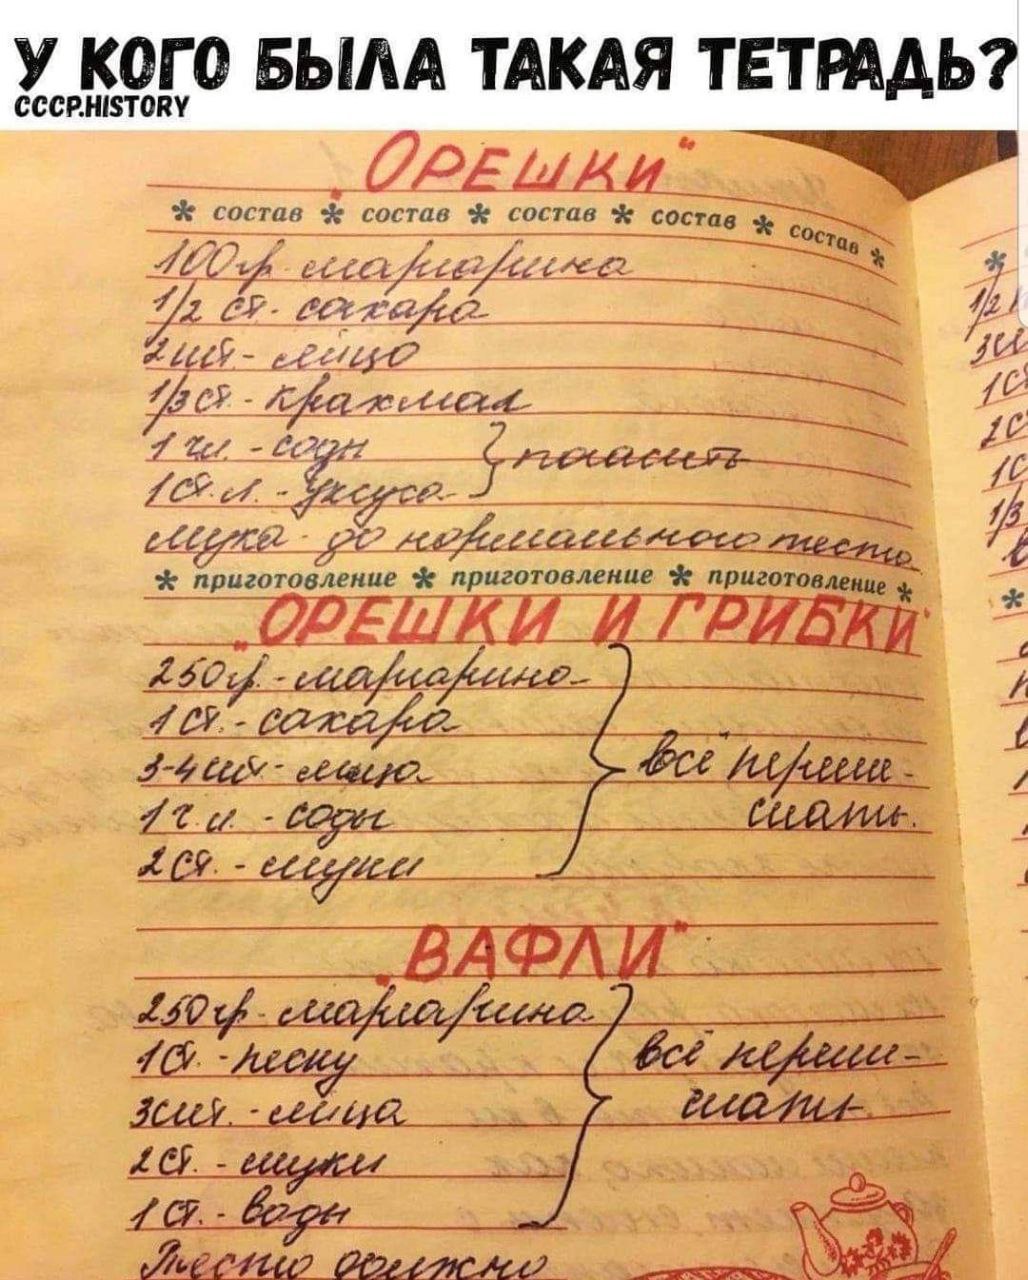 У КОГО БЫЛА ТАКАЯ ТЕТРАДЬ?
CCCP.HISTORY
„ОРЕШКИ"
* состав * состав * состав * состав * состав *
100 гр. маргарина
1/2 ст. сахара
2 шт - яйцо
1/3 ст. - крахмал
1 ч.л. - соды } погасить
1 ст. л. - уксуса
мука - до нормального теста
* приготовление * приготовление * приготовление *
„ОРЕШКИ И ГРИБКИ"
250 гр. - маргарина
1 ст. - сахара
3-4 шт - яйца
1 ч. л. - соды
2 ст. - муки
} всё переме-
шать.
„ВАФЛИ"
250 гр - маргарина
1 ст. - песку
3 шт. - яйца
2 ст. - муки
1 ст. - воды
} всё переме-
шать.
Тесто должно
*
1/2
1/3
*